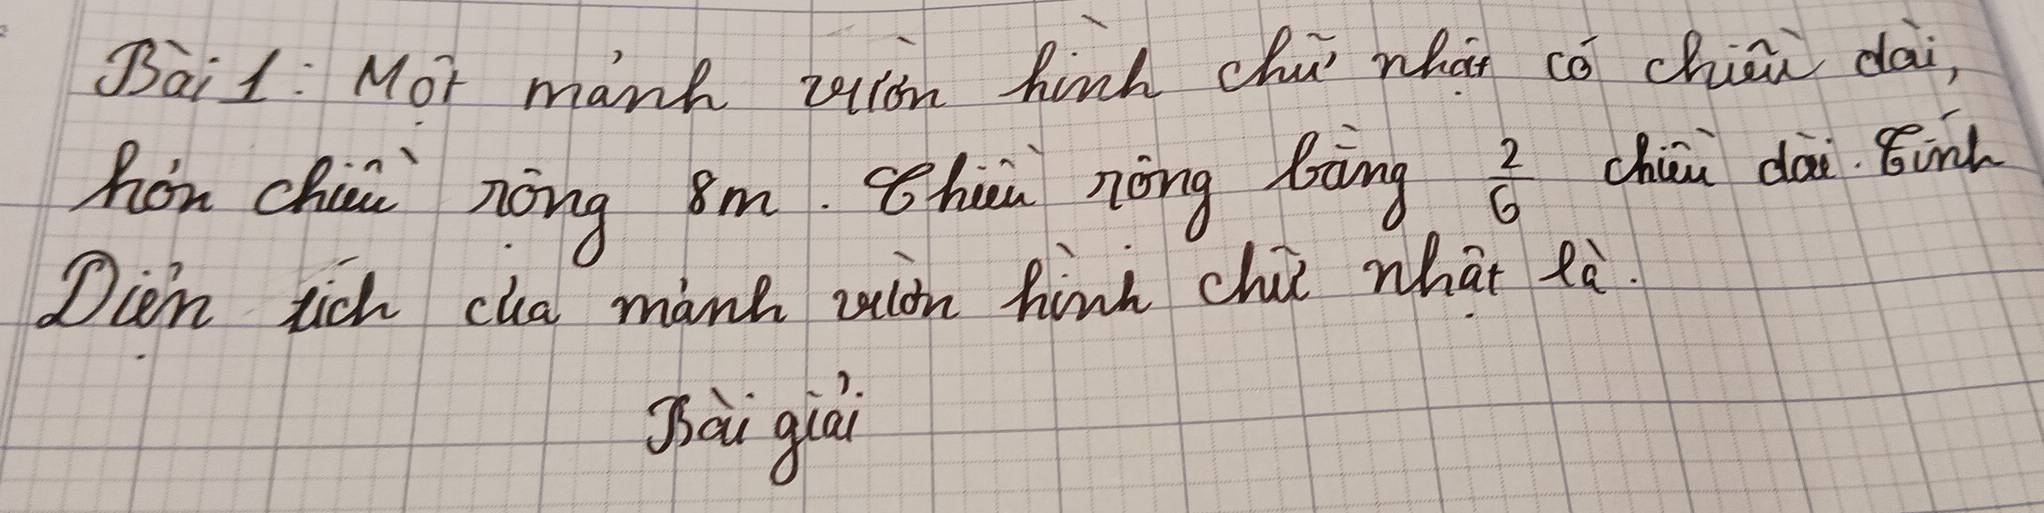 Bài 1: Một mảnh vườn hình chữ nhật có chiều dài,
hơn chiều rộng 8m. Chiều rộng bằng 2/6 chiều dài. Tính
Diện tích của mảnh vườn hình chữ nhật là.
Bài giải